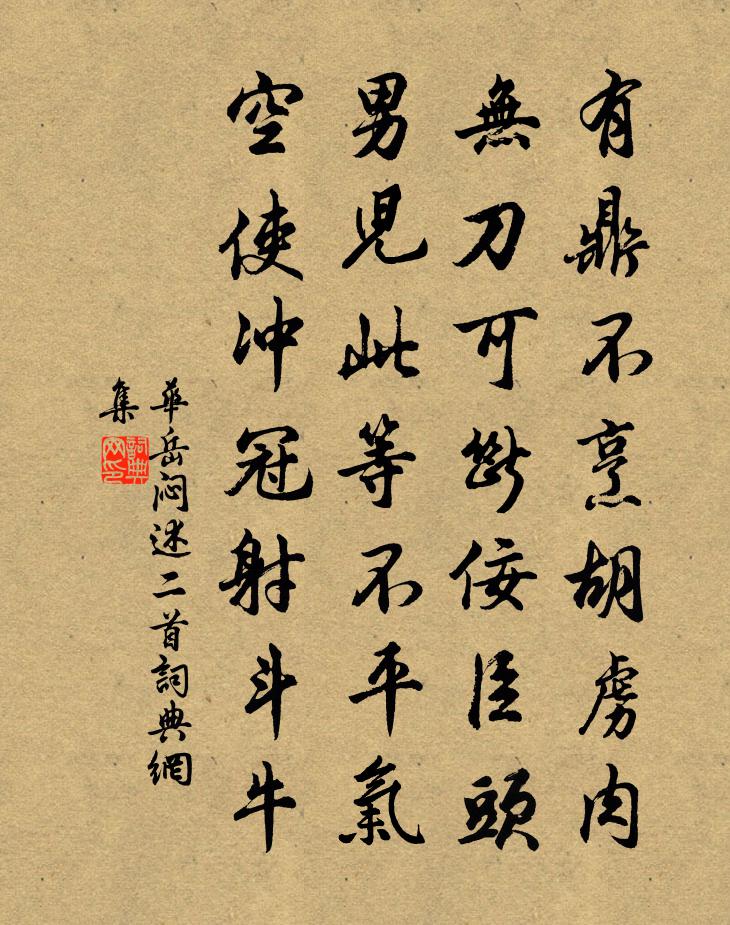 有鼎不烹胡虜肉
無刀可斷佞臣頭
男兒此等不平氣
空使冲冠射斗牛
華岳闷述二首詞典網
集
詞典
网印